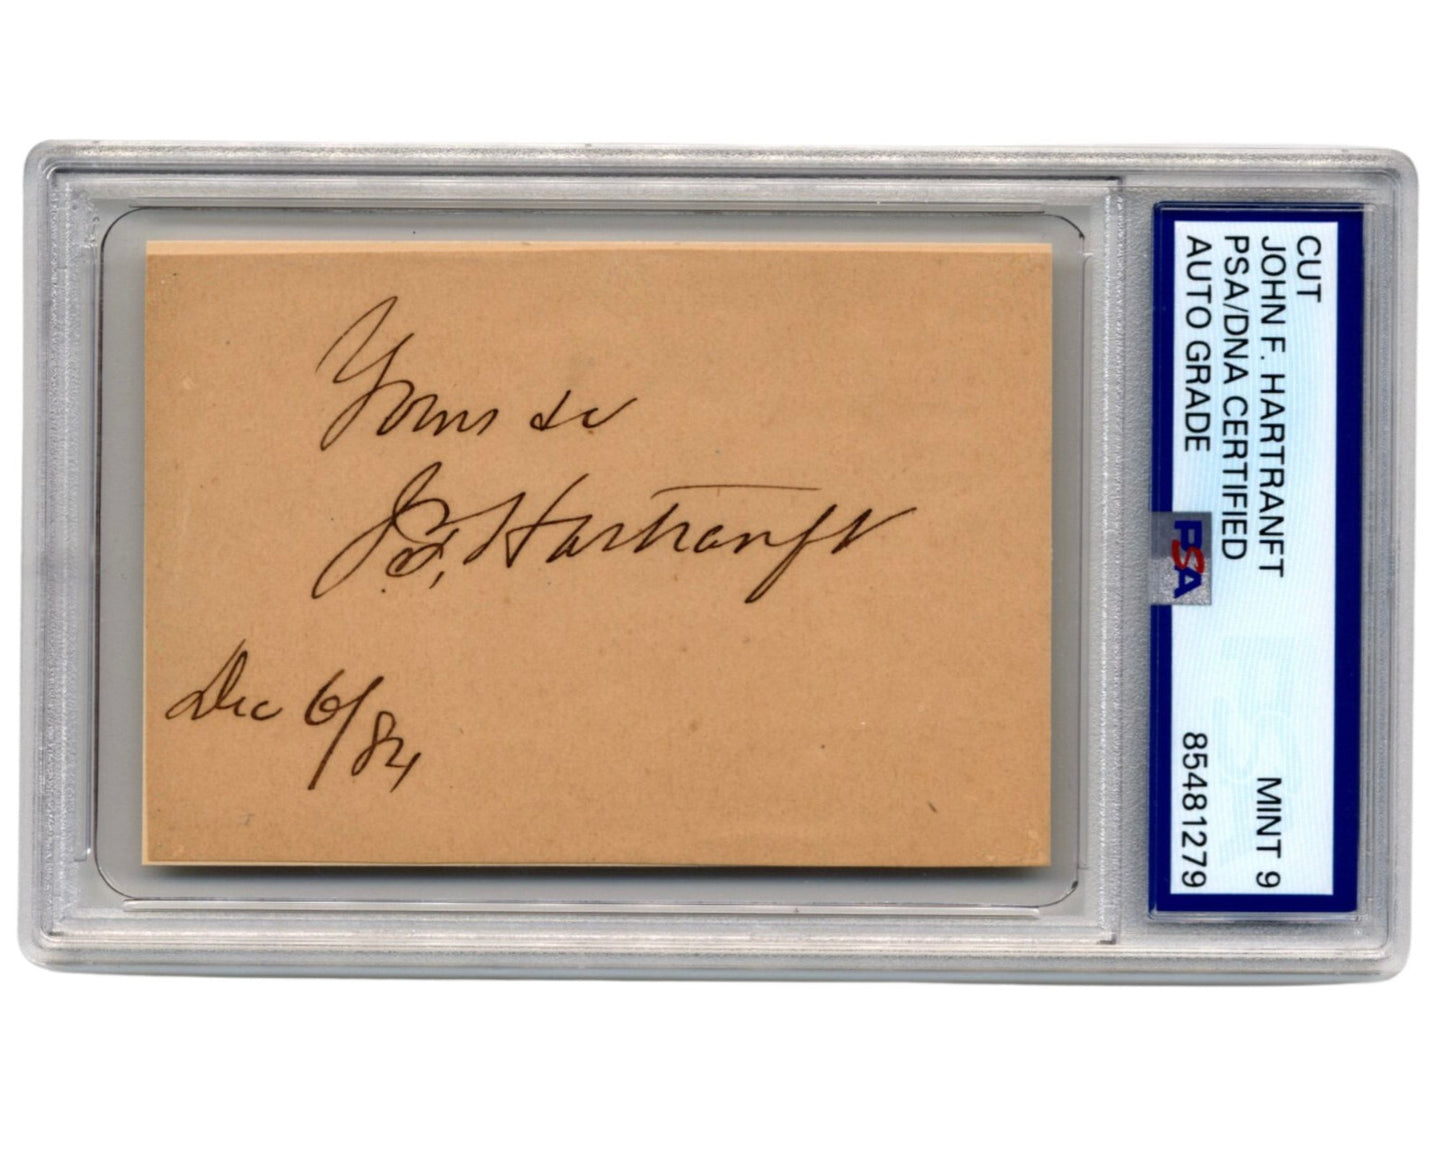 Yours &c
J. F. Hartranft
Dec 6/84
CUT
JOHN F. HARTRANFT MINT 9
PSA/DNA CERTIFIED
AUTO GRADE 85481279
PSA